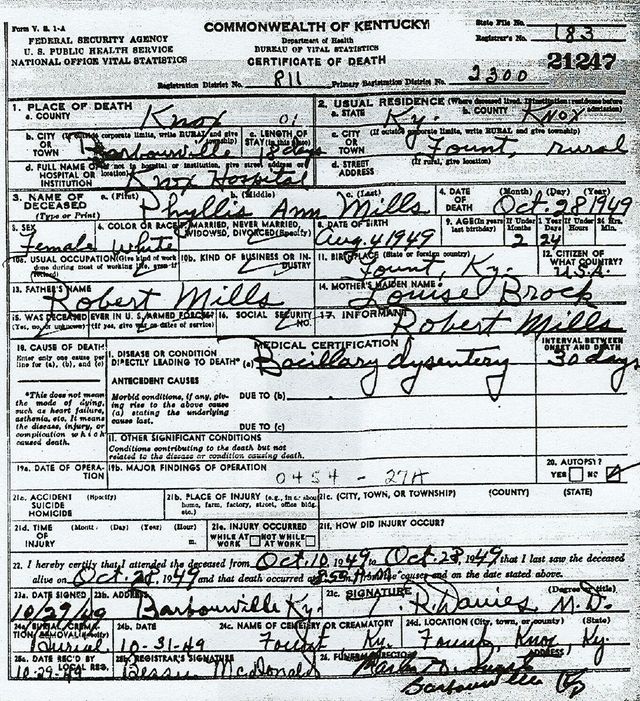 Form V. S. 1-A
COMMONWEALTH OF KENTUCKY
State File No.
FEDERAL SECURITY AGENCY
U. S. PUBLIC HEALTH SERVICE
NATIONAL OFFICE VITAL STATISTICS
Department of Health
BUREAU OF VITAL STATISTICS
CERTIFICATE OF DEATH
Registrar's No. 183
21247
Registration District No. 811 Primary Registration District No. 2300
1. PLACE OF DEATH
a. COUNTY Knox 01
2. USUAL RESIDENCE (Where deceased lived. If institution: residence before admission)
a. STATE Ky. b. COUNTY Knox
b. CITY (If outside corporate limits, write RURAL and give township) OR TOWN Barbourville
c. LENGTH OF STAY (in this place) days
c. CITY (If outside corporate limits, write RURAL and give township) OR TOWN Fount, rural
d. FULL NAME OF (If not in hospital or institution, give street address or location) HOSPITAL OR INSTITUTION Knox Hospital
d. STREET ADDRESS (If rural, give location)
3. NAME OF DECEASED (Type or Print) a. (First) b. (Middle) c. (Last)
Phyllis Ann Mills
4. DATE OF DEATH (Month) (Day) (Year)
Oct. 28 1949
5. SEX Female
6. COLOR OR RACE White
7. MARRIED, NEVER MARRIED, WIDOWED, DIVORCED (Specify)
8. DATE OF BIRTH Aug. 4 1949
9. AGE (In years last birthday) If Under 1 Year Months 2 Days 24 If Under 24 Hrs. Hours Min.
10a. USUAL OCCUPATION (Give kind of work done during most of working life, even if retired)
10b. KIND OF BUSINESS OR INDUSTRY
11. BIRTHPLACE (State or foreign country) Fount, Ky.
12. CITIZEN OF WHAT COUNTRY? U.S.A.
13. FATHER'S NAME Robert Mills
14. MOTHER'S MAIDEN NAME Louise Brock
15. WAS DECEASED EVER IN U. S. ARMED FORCES? (Yes, no, or unknown) (If yes, give war or dates of service)
16. SOCIAL SECURITY NO.
17. INFORMANT Robert Mills
18. CAUSE OF DEATH
Enter only one cause per line for (a), (b), and (c)
MEDICAL CERTIFICATION
INTERVAL BETWEEN ONSET AND DEATH
I. DISEASE OR CONDITION DIRECTLY LEADING TO DEATH* (a) Bacillary dysentery 30 days
*This does not mean the mode of dying, such as heart failure, asthenia, etc. It means the disease, injury, or complication which caused death.
ANTECEDENT CAUSES
Morbid conditions, if any, giving rise to the above cause (a) stating the underlying cause last.
DUE TO (b)
DUE TO (c)
II. OTHER SIGNIFICANT CONDITIONS
Conditions contributing to the death but not related to the disease or condition causing death.
19a. DATE OF OPERATION
19b. MAJOR FINDINGS OF OPERATION
0454 - 27A
20. AUTOPSY?
YES NO
21a. ACCIDENT SUICIDE HOMICIDE (Specify)
21b. PLACE OF INJURY (e.g., in or about home, farm, factory, street, office bldg., etc.)
21c. (CITY, TOWN, OR TOWNSHIP) (COUNTY) (STATE)
21d. TIME OF INJURY (Month) (Day) (Year) (Hour) m.
21e. INJURY OCCURRED WHILE AT WORK NOT WHILE AT WORK
21f. HOW DID INJURY OCCUR?
22. I hereby certify that I attended the deceased from Oct. 10, 1949 to Oct. 28, 1949 that I last saw the deceased
alive on Oct. 28, 1949 and that death occurred at m., from the causes and on the date stated above.
23a. DATE SIGNED 10/29/49
23b. ADDRESS Barbourville Ky.
23c. SIGNATURE (Degree or title)
R. Davies M.D.
24a. BURIAL, CREMATION, REMOVAL (Specify) Burial
24b. DATE 10-31-49
24c. NAME OF CEMETERY OR CREMATORY Fount Ky.
24d. LOCATION (City, town, or county) (State) Fount, Knox, Ky.
25a. DATE REC'D BY LOCAL REG. 10-29-49
25b. REGISTRAR'S SIGNATURE Bessie McDonald
26. FUNERAL DIRECTOR ADDRESS
Barbourville Ky